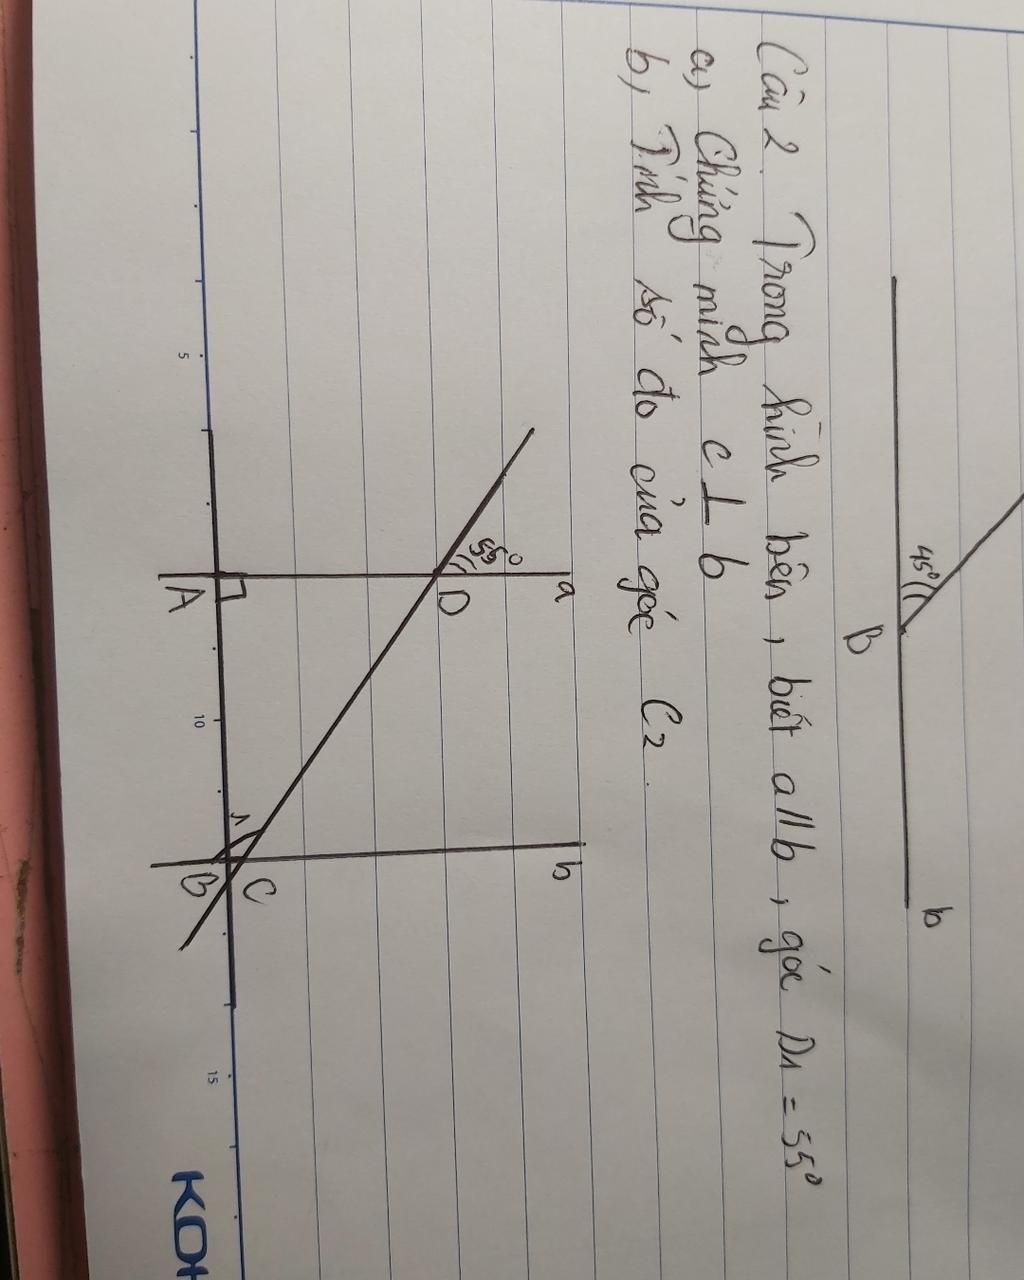 45°
B
b
Câu 2. Trong hình bên, biết a//b, góc D1 = 55°
a, Chứng minh c ⊥ b
b, Tính số đo của góc C2.
a
b
55°
D
C
1
A
B
5
10
15
KOK